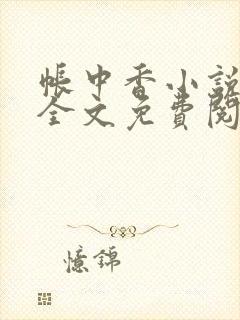 帳中香小說
全文免費閱
憶錦